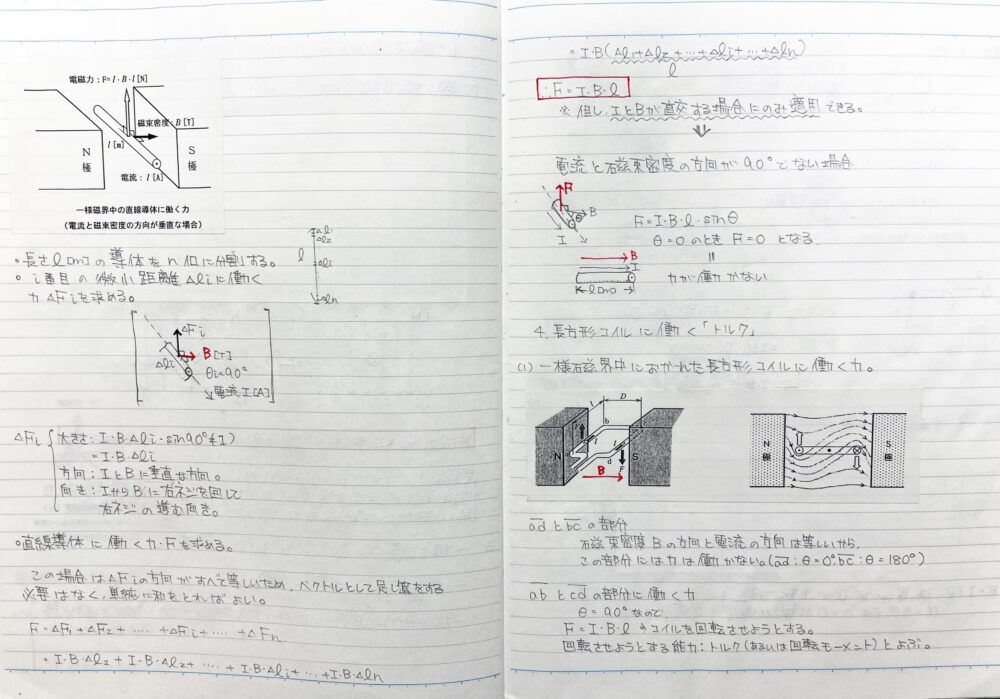 電磁力:F=I・B・l[N]
磁束密度:B[T]
l[m]
N
極
S
極
電流:I[A]
一様磁界中の直線導体に働く力
(電流と磁束密度の方向が垂直な場合)
・長さl[m]の導体をn個に分割する。
・i番目の微小距離Δliに働く
力ΔFiを求める。
l
Δl1
Δl2
Δli
Δln
ΔFi
B[T]
Δli
θi=90°
電流I[A]
ΔFi
大きさ:I・B・Δli・sin90°(=1)
=I・B・Δli
方向:IとBに垂直な方向。
向き:IからBに右ネジを回して
右ネジの進む向き。
・直線導体に働く力・Fを求める。
この場合はΔFiの方向がすべて等しいため、ベクトルとして足し算をする
必要はなく、単純に和をとればよい。
F=ΔF1+ΔF2+‥‥+ΔFi+‥‥+ΔFn
=I・B・Δl1+I・B・Δl2+‥‥+I・B・Δli+‥+I・B・Δln
=I・B(Δl1+Δl2+‥+Δli+‥+Δln)
l
∴F=I・B・l
※但し、IとBが直交する場合にのみ適用できる。
電流と磁束密度の方向が90°でない場合
F
B
I
F=I・B・l・sinθ
θ=0のとき F=0 となる。
B
I
l[m]
力が働かない
4.長方形コイルに働く「トルク」
(1)一様磁界中におかれた長方形コイルに働く力。
D
I
b
F
l
c
N
d
S
F
B
N
極
S
極
adとbcの部分
磁束密度Bの方向と電流の方向は等しいから、
この部分には力は働かない。(ad:θ=0° bc:θ=180°)
abとcdの部分に働く力
θ=90°なので、
F=I・B・l → コイルを回転させようとする。
回転させようとする能力:トルク(あるいは回転モーメント)とよぶ。